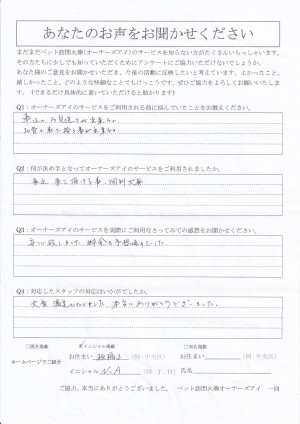 あなたのお声をお聞かせください
まだまだペット訪問火葬(オーナーズアイ)のサービスを知らない方がたくさんいらっしゃいます。
その方たちに少しでも知っていただくためにアンケートにご協力いただけないでしょうか。
あなた様のご意見をお聞かせいただき、今後の活動に反映したいと考えています。よかったこと、
嬉しかったこと、どのような些細なことでもけっこうです。ぜひご協力をよろしくお願いいたしま
す。(できるだけ具体的に書いていただけると助かります)
Q1:オーナーズアイのサービスをご利用される前に悩んでいたことをお教えください。
Q2:何が決め手となってオーナーズアイのサービスをご利用されましたか。
来て頂ける事、個別火葬
Q3:オーナーズアイのサービスを実際にご利用なさってみての感想をお聞かせください。
Q4:対応したスタッフの対応はいかがでしたか。
大変満足いたしました。本当にありがとうございました。
□匿名掲載
イニシャル掲載
□実名掲載
ホームページでご紹介
お住まい 板橋区 (例:中央区)
お住まい (例:中央区)
イニシャル N.A (例:J.H)
氏名
ご協力、本当にありがとうございました。 ペット訪問火葬オーナーズアイ 一同